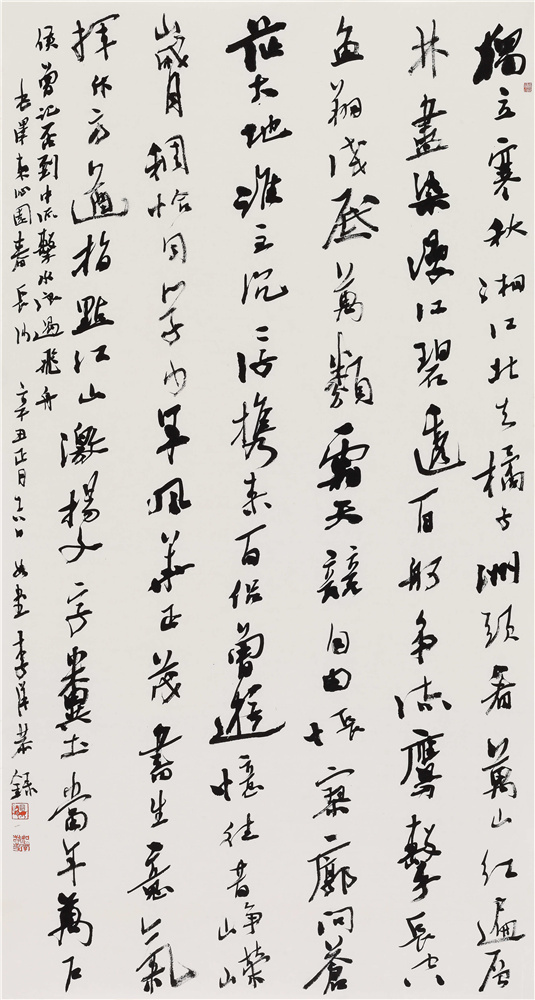 獨立寒秋湘江北去橘子洲頭看萬山紅遍層
林盡染漫江碧透百舸爭流鷹擊長空
魚翔淺底萬類霜天競自由悵寥廓問蒼
茫大地誰主沉浮携来百侣曾遊憶往昔崢嶸
歲月稠恰同學少年風華正茂書生意氣
揮斥方遒指點江山激揚文字糞土當年萬户
侯曾記否到中流擊水浪遏飛舟
毛澤東沁園春長沙
辛丑正月 李洋恭錄